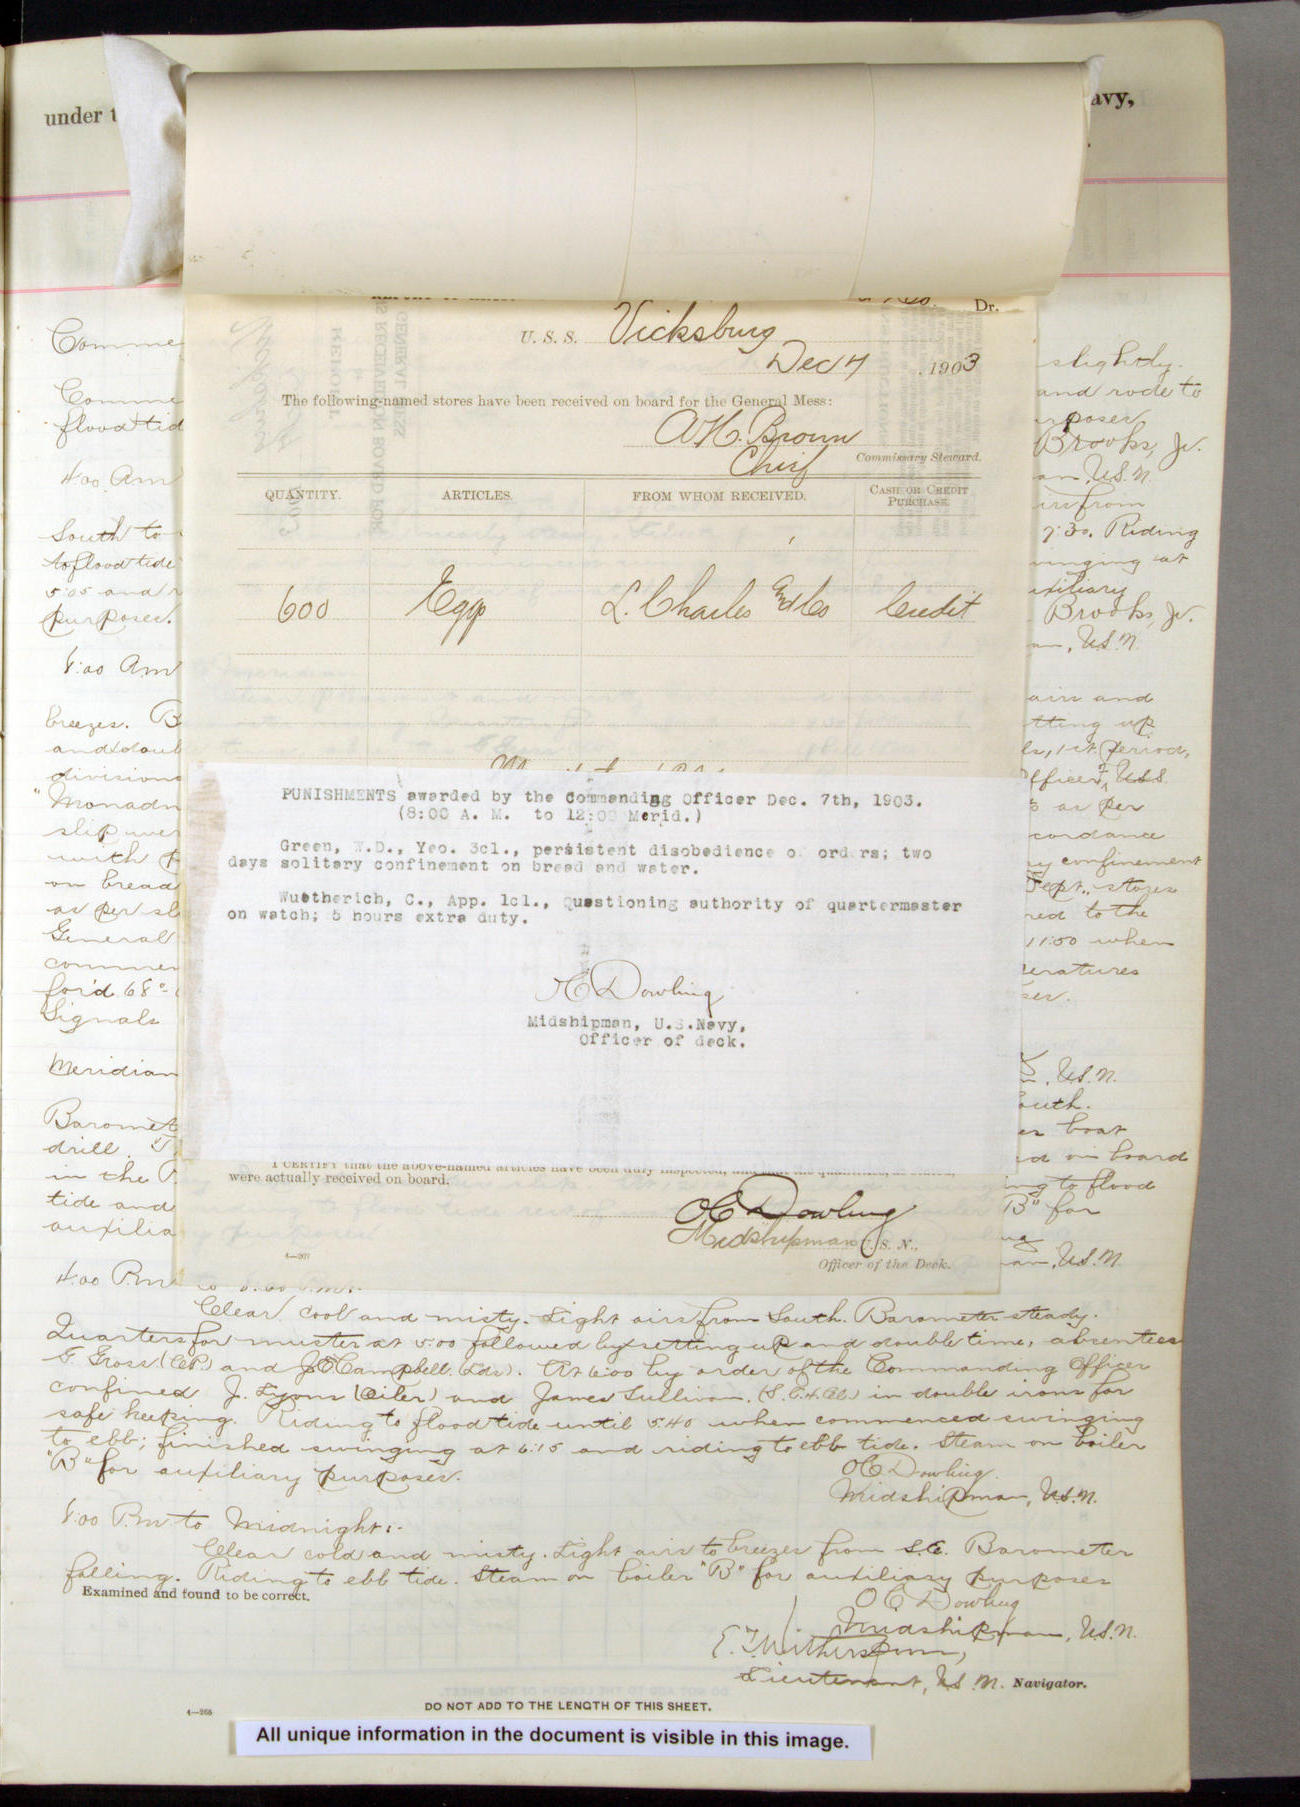 under t
avy,
Dr.
U. S. S. Vicksburg
Dec 7 , 1903
The following-named stores have been received on board for the General Mess:
A H. Brown
Chief Commissary Steward.
QUANTITY. ARTICLES. FROM WHOM RECEIVED. CASH OR CREDIT PURCHASE.
600 Eggs L. Charles and Co Credit
PUNISHMENTS awarded by the Commanding Officer Dec. 7th, 1903.
(8:00 A. M. to 12:00 Merid.)
Green, W.D., Yeo. 3cl., persistent disobedience of orders; two
days solitary confinement on bread and water.
Wuetherich, C., App. 1cl., Questioning authority of quartermaster
on watch; 5 hours extra duty.
O C Dowling
Midshipman, U.S.Navy,
Officer of deck.
I CERTIFY that the above-named articles have been duly inspected, and that the quantities, as stated,
were actually received on board.
O C Dowling
Midshipman U. S. N.,
4—207
Officer of the Deck.
Comme
slightly.
Comme
and rode to
flood tid
rposes
Brooks, Jr.
4:00 Am
an, U.S.N.
irs from
South to
7:30. Riding
to flood tide
inging at
5:05 and r
xiliary
purposes.
Brooks, Jr.
an, U.S.N.
8:00 Am
airs and
breezes. B
tting up
and doub
ls, 1st period,
division
Officer, U.S.S.
"Monadn
as per
slip wer
cordance
with
ry confinement
on bread
Dept. stores
as per sl
red to the
General
11:50 when
commen
peratures
for'd 68°
ses.
Signals
Meridian
, U.S.N.
outh.
Baromet
er boat
drill.
ed on board
in the P.
ing to flood
tide and
B" for
auxilia
man, U.S.N.
4:00 P.m to 8:00 P.m:-
Clear, cool and misty. Light airs from South. Barometer steady.
Quarters for muster at 5:00 followed by setting up and double time, absentees
G. Gross (CP) and J.O. Campbell (Lds). At 6:00 by order of the Commanding Officer
confined J. Lyons (Oiler) and James Sullivan, in double irons for
safe keeping. Riding to flood tide until 5:40 when commenced swinging
to ebb; finished swinging at 6:15 and riding to ebb tide. Steam on boiler
"B" for auxiliary purposes.
O C Dowling.
Midshipman, U.S.N.
8:00 P.m to Midnight:-
Clear cold and misty. Light airs to breezes from S.E. Barometer
falling. Riding to ebb tide. Steam on boiler "B" for auxiliary purposes
Examined and found to be correct.
O C Dowling
Midshipman, U.S.N.
E. T. Witherspoon,
Lieutenant, U.S.N. Navigator.
4—266
DO NOT ADD TO THE LENGTH OF THIS SHEET.
All unique information in the document is visible in this image.